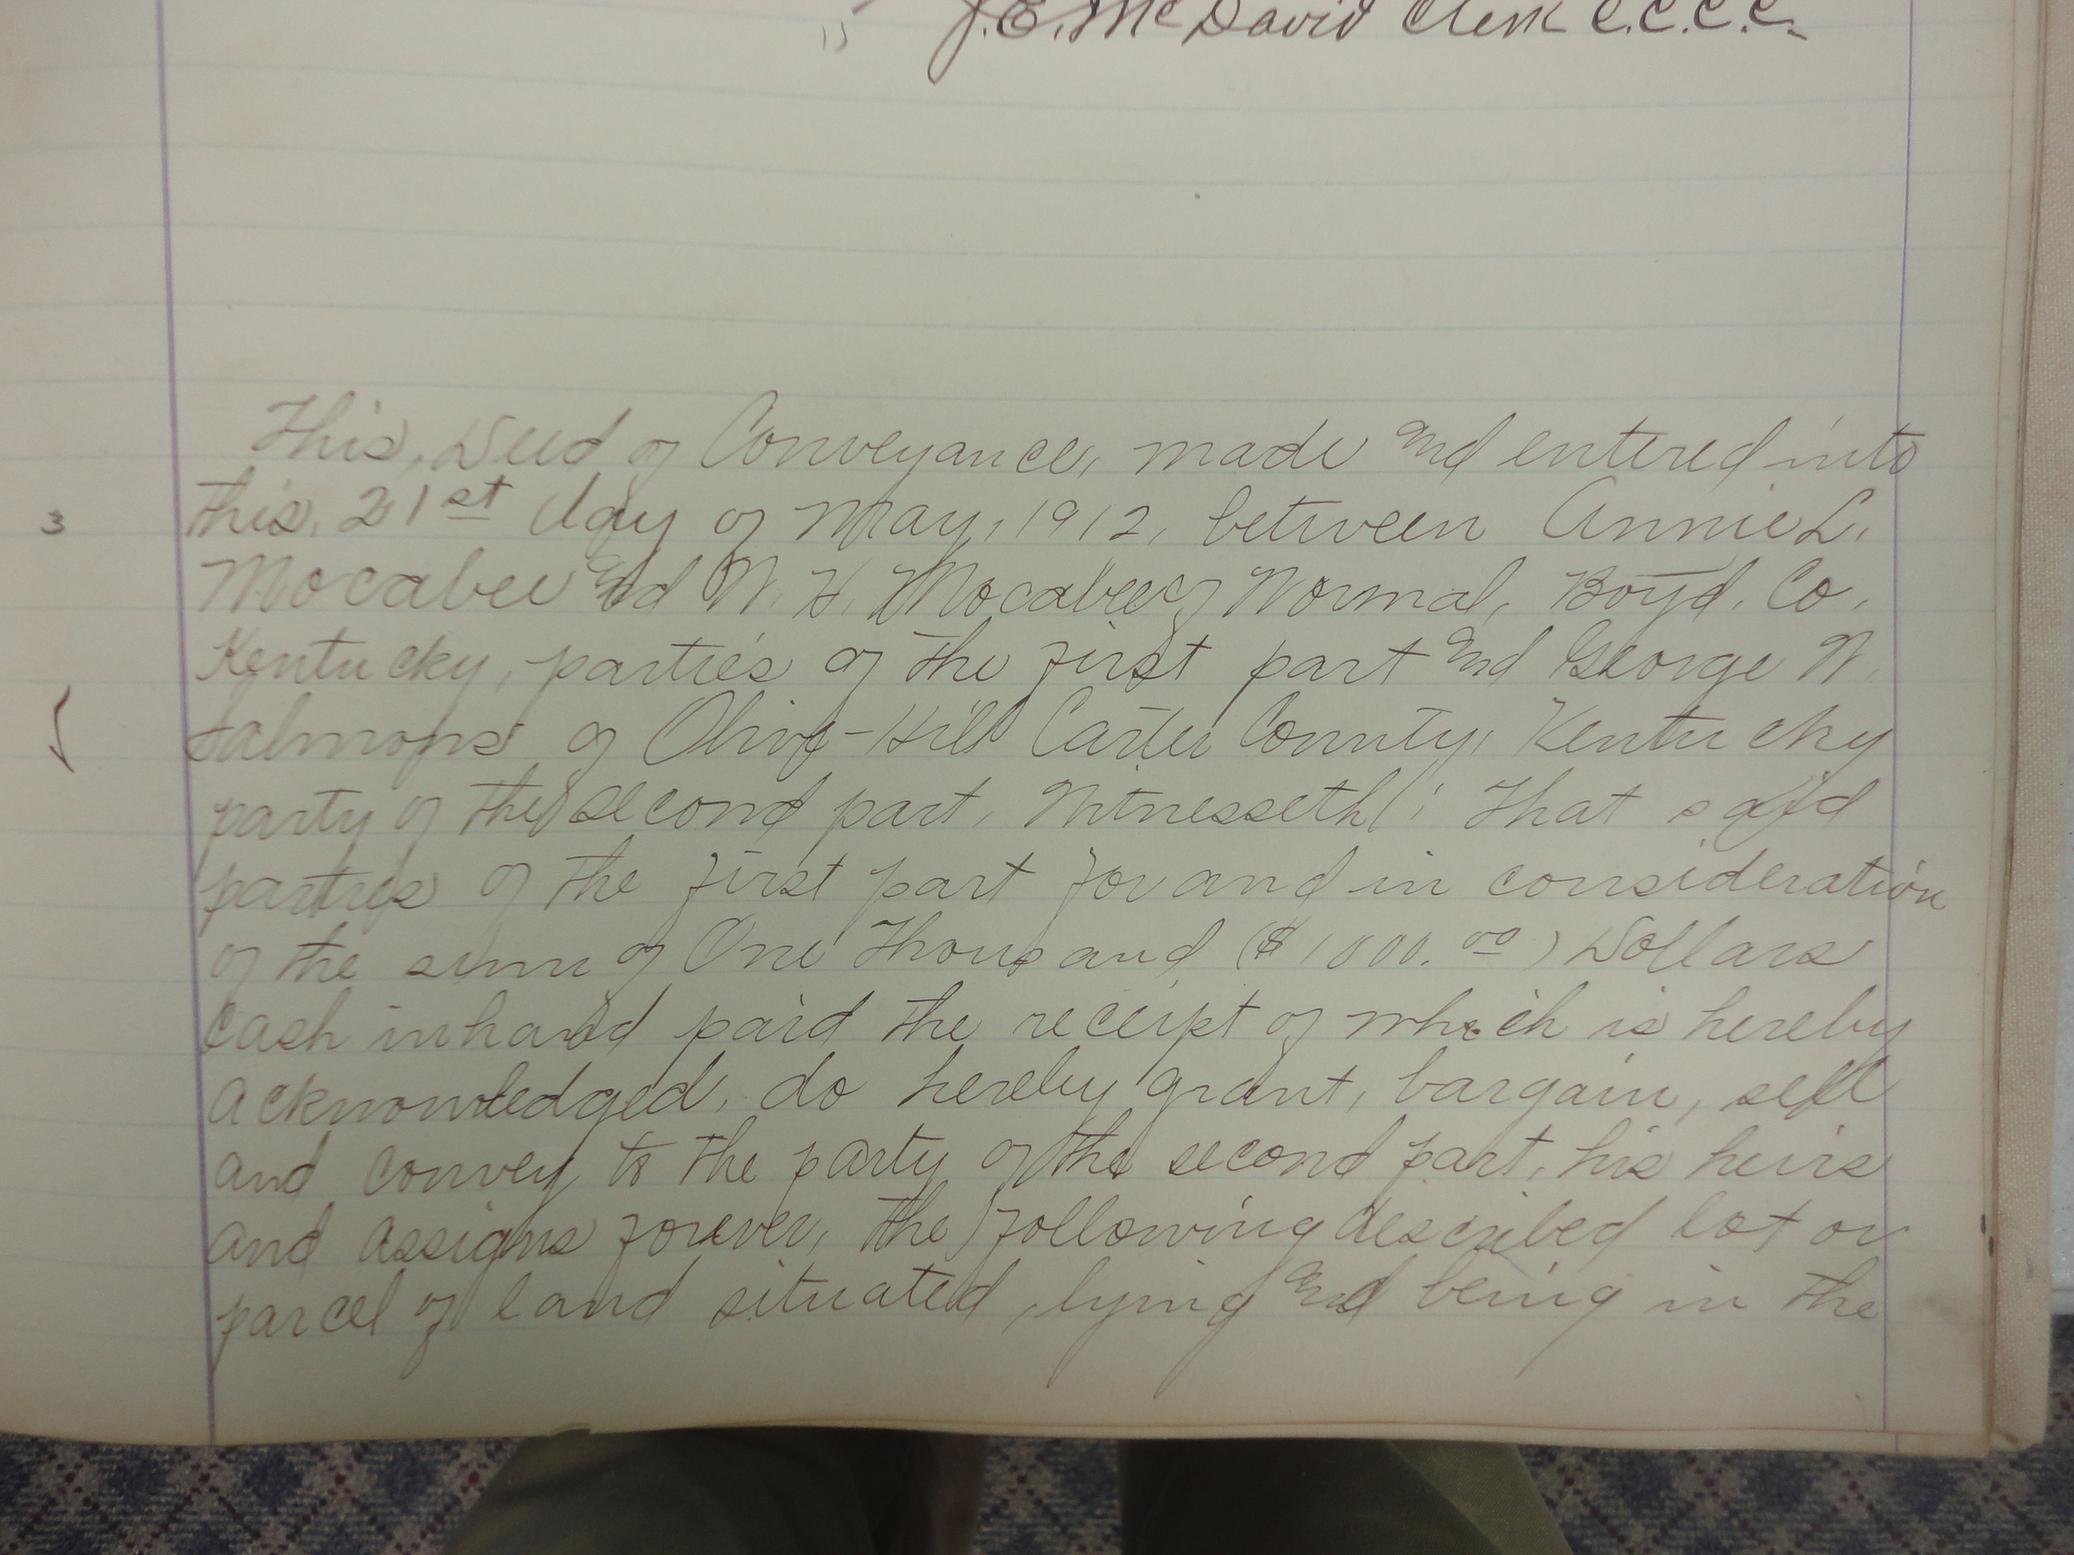 J.E. McDavid Clerk C.C.C.C.
This, Deed of Conveyance, made and entered into
this, 21st day of May, 1912, between Annie L.
3
Mocabee and W. H. Mocabee of Normal, Boyd, Co,
Kentucky, parties of the first part and George W.
Salmons of Olive-Hill Carter County, Kentucky
party of the second part, Witnesseth: That said
parties of the first part for and in consideration
of the sum of One Thousand ($1000.00) Dollars
Cash in hand paid the receipt of which is hereby
acknowledged, do hereby grant, bargain, sell
and convey to the party of the second part, his heirs
and assigns forever, the following described lot or
parcel of land situated, lying and being in the